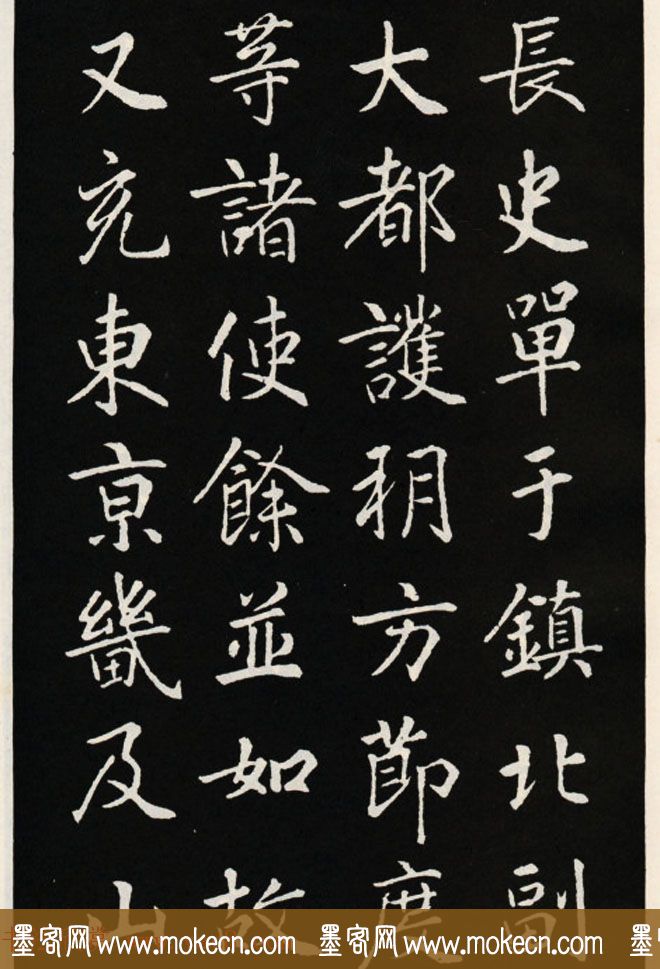 長史單于鎮北副
大都護朔方節度
等諸使餘並如故
又充東京畿及山
墨客网 www.mokecn.com 墨客网 www.mokecn.com